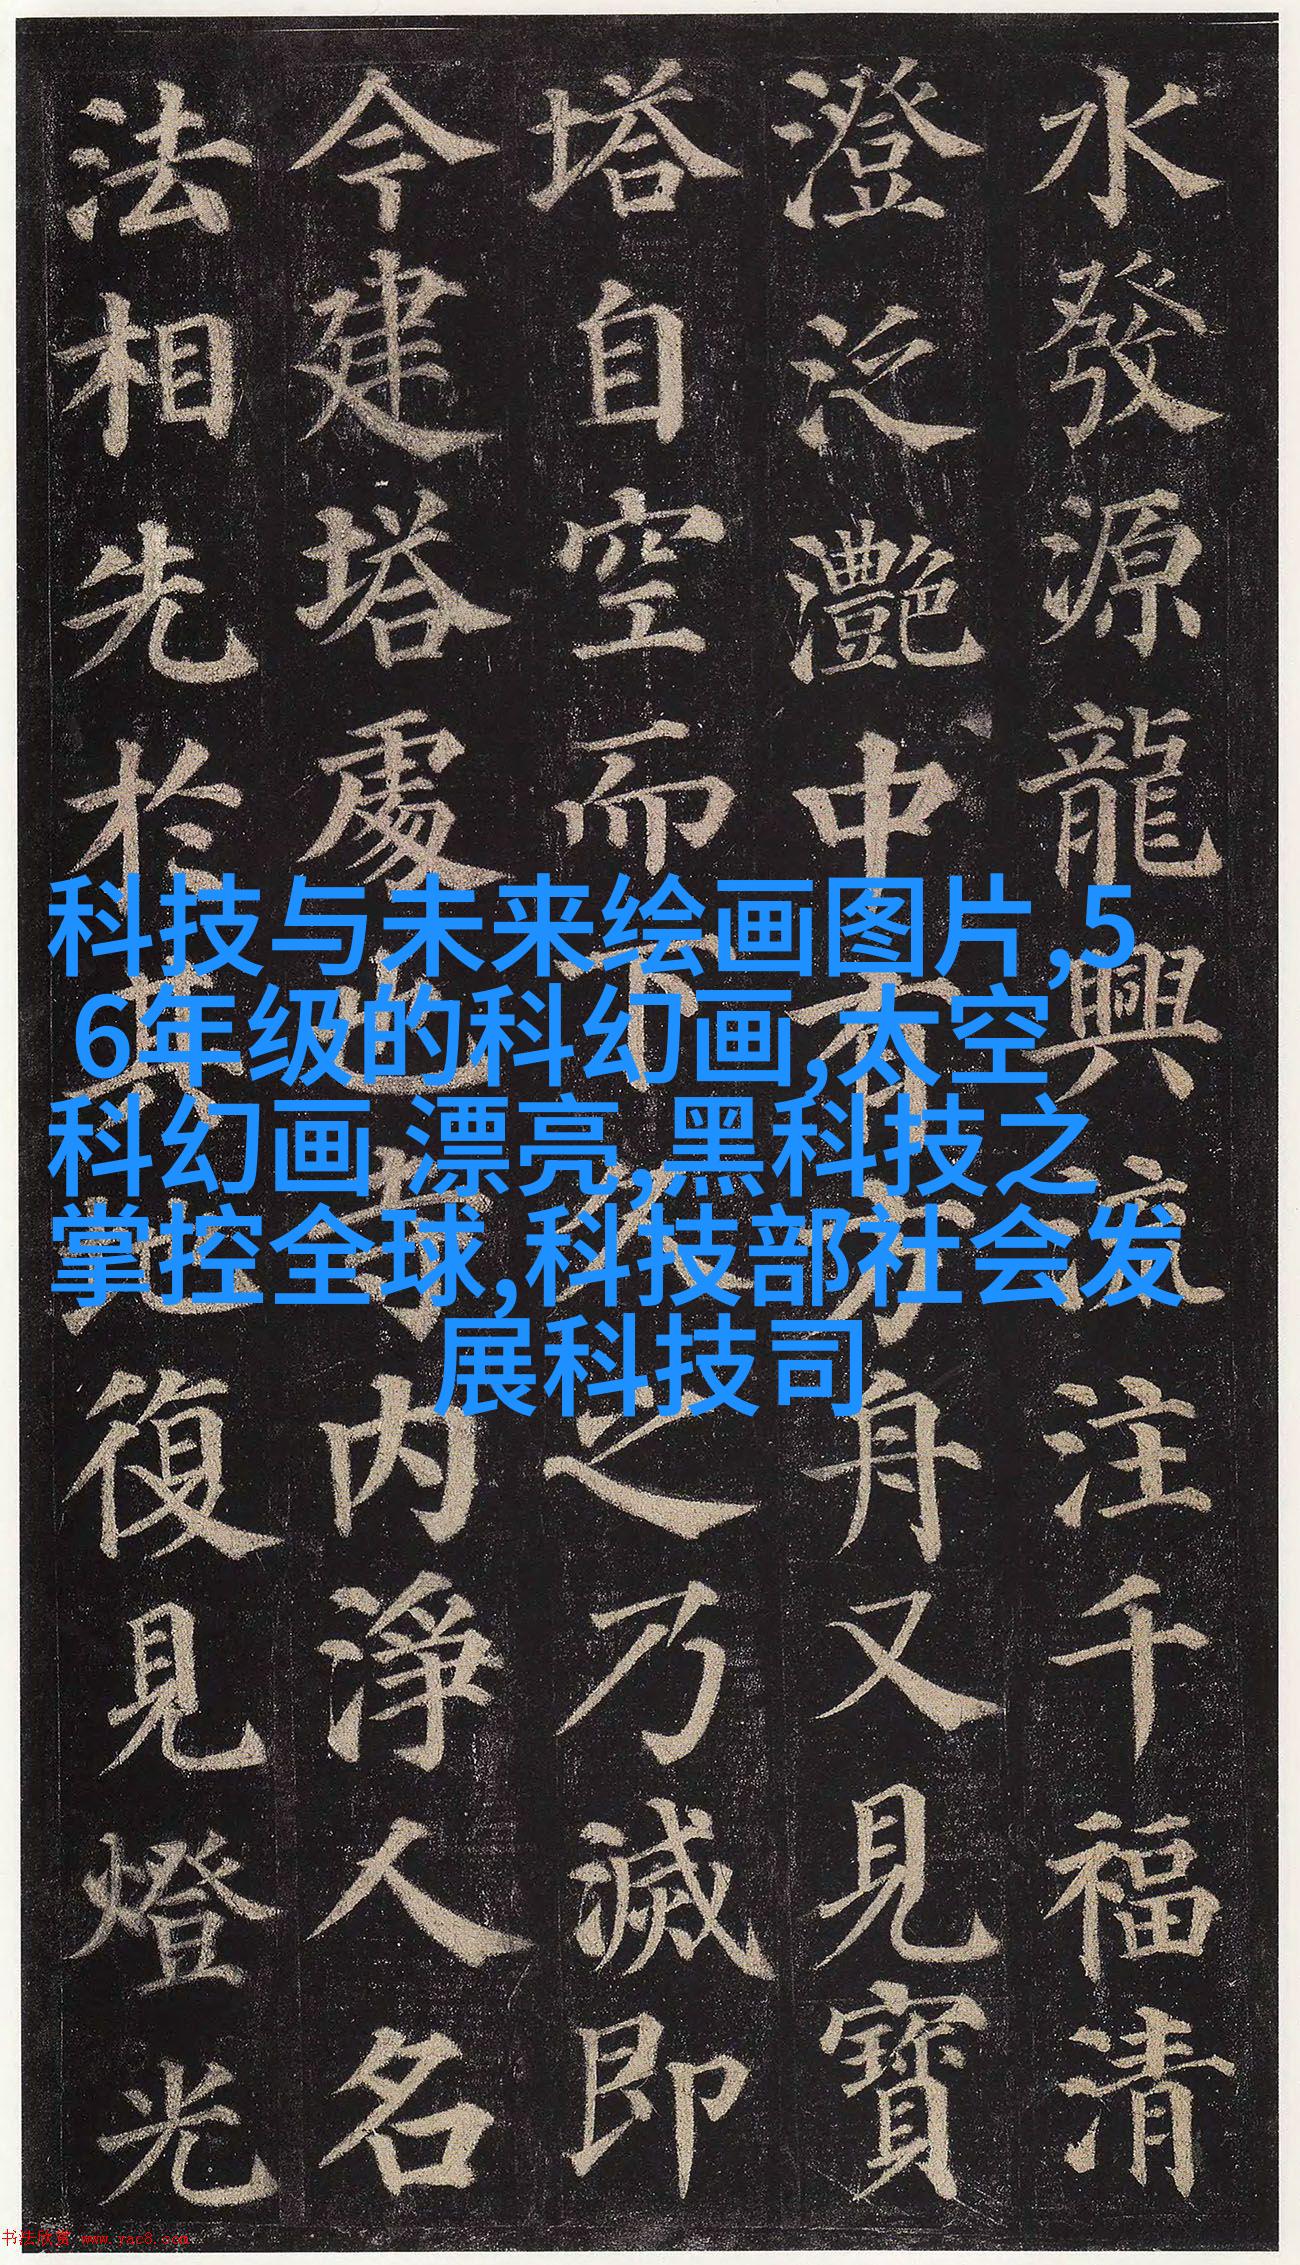 水發源龍興流注千福清
澄泛灧中有方舟又見寶
塔自空而下久之乃滅即
今建塔處也寺内淨人名
法相先於其地復見燈光
科技与未来绘画图片,5
6年级的科幻画,太空
科幻画 漂亮,黑科技之
掌控全球,科技部社会发
展科技司
书法欣赏 www.yac8.com